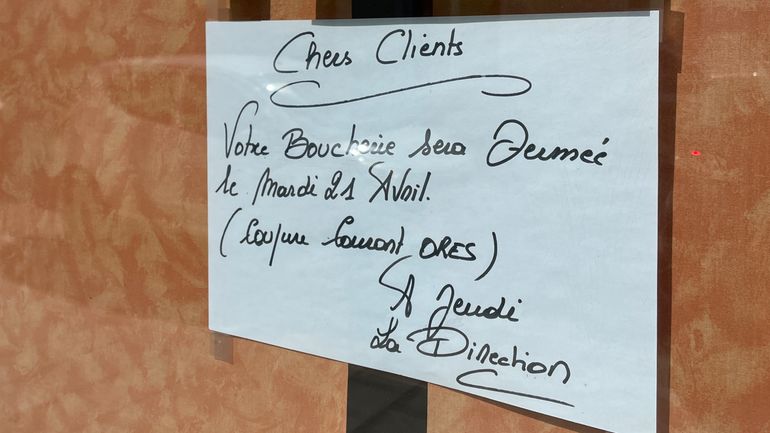 Chers Clients
Votre Boucherie sera Fermée
le Mardi 21 Avril.
(Coupure Courant ORES)
A Jeudi
La Direction